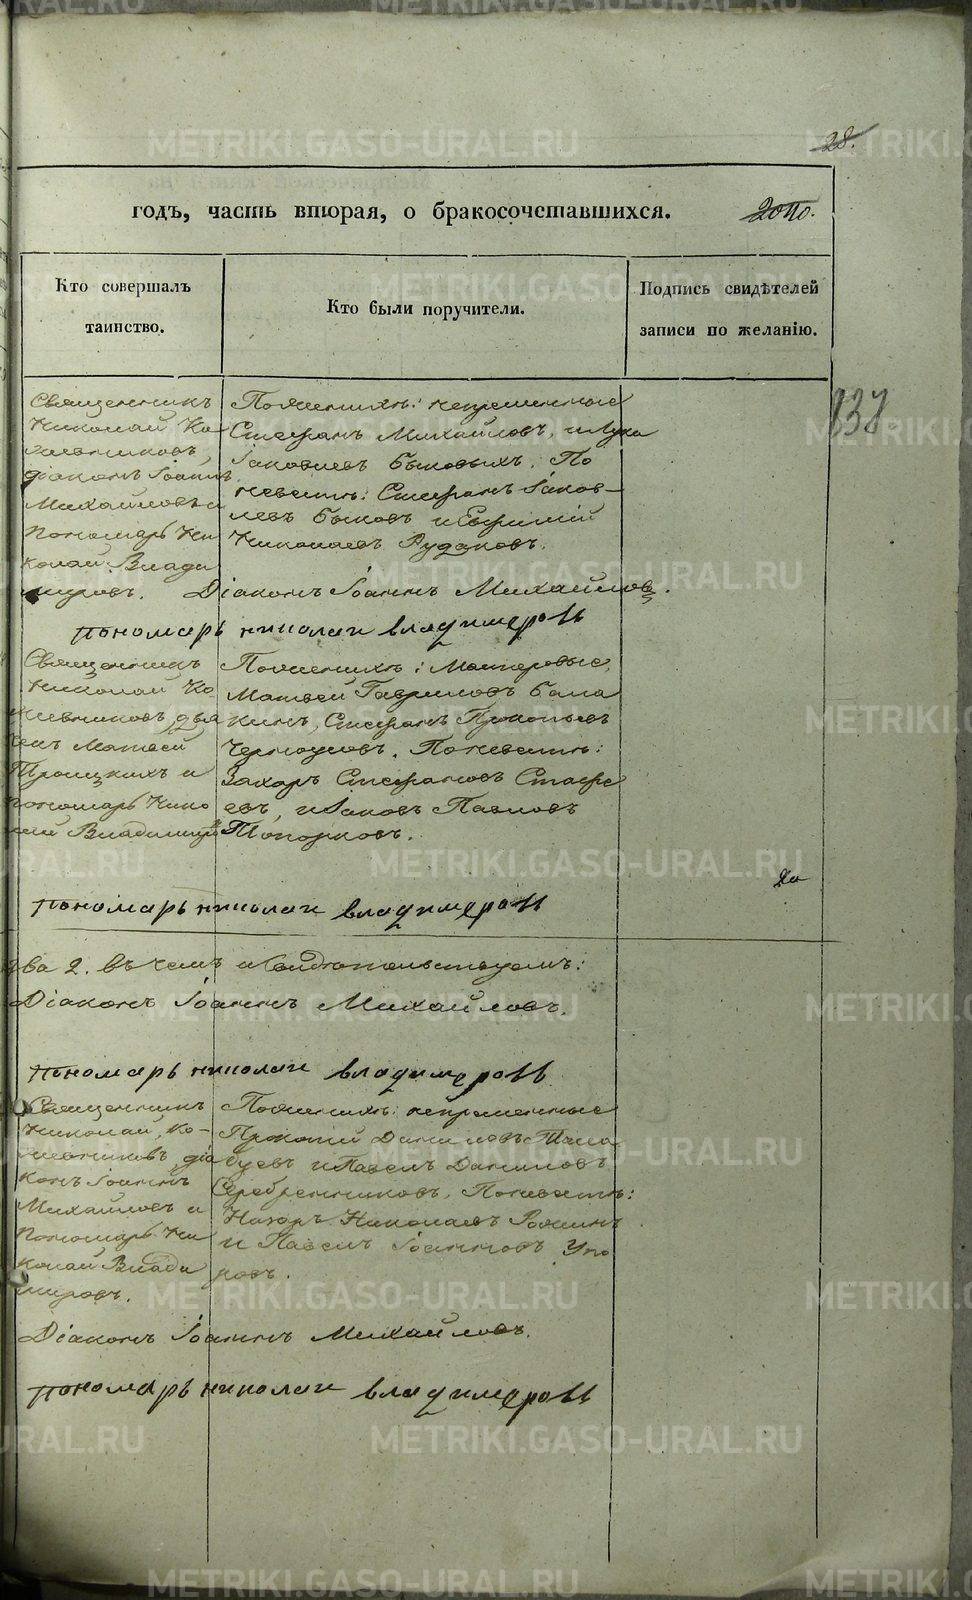 28.
годъ, часть вторая, о бракосочетавшихся.
Кто совершалъ
таинство.
Кто были поручители.
Подпись свидѣтелей
записи по желанію.
837
Священникъ
Николай Ко
жевниковъ,
діаконъ Іоаннъ
Михайловъ и
Пономарь Ни
колай Влади
мировъ.
По женихѣ: непременные
Стефанъ Михайловъ, и Лука
Іаковлевъ Быковыхъ. По
невестѣ: Стефанъ Іаков-
левъ Быковъ и Евфимій
Николаевъ Рудаковъ.
Діаконъ Іоаннъ Михайловъ.
пономарь николаи владимеровъ
Священникъ
Николай Ко
жевниковъ, дья
чекъ Матвей
Троицкихъ и
пономарь Нико
лай Владимировъ
По женихѣ: Мастеровые,
Матвей Гавриловъ Бала
кинъ, Стефанъ Прокопьевъ
Черноусовъ. По невестѣ:
Захаръ Стефановъ Стафе
евъ, и Іаковъ Павловъ
Топорковъ.
пономарь николаи владимеровъ
два 2. въ чемъ и свидѣтельствуемъ:
Діаконъ Іоаннъ Михайловъ.
пономарь николаи владимеровъ
Священникъ
Николай Ко-
жевниковъ, діа
конъ Іоаннъ
Михайловъ и
Пономарь Ни
колай Влади
мировъ.
По женихѣ: непременные
Прокопій Даниловъ
и Павелъ Даниловъ
Серебренниковъ. По невестѣ:
Назаръ Николаевъ
и Павелъ Іоанновъ Упо
ровъ.
Діаконъ Іоаннъ Михайловъ.
пономарь николаи владимеровъ
METRIKI.GASO-URAL.RU